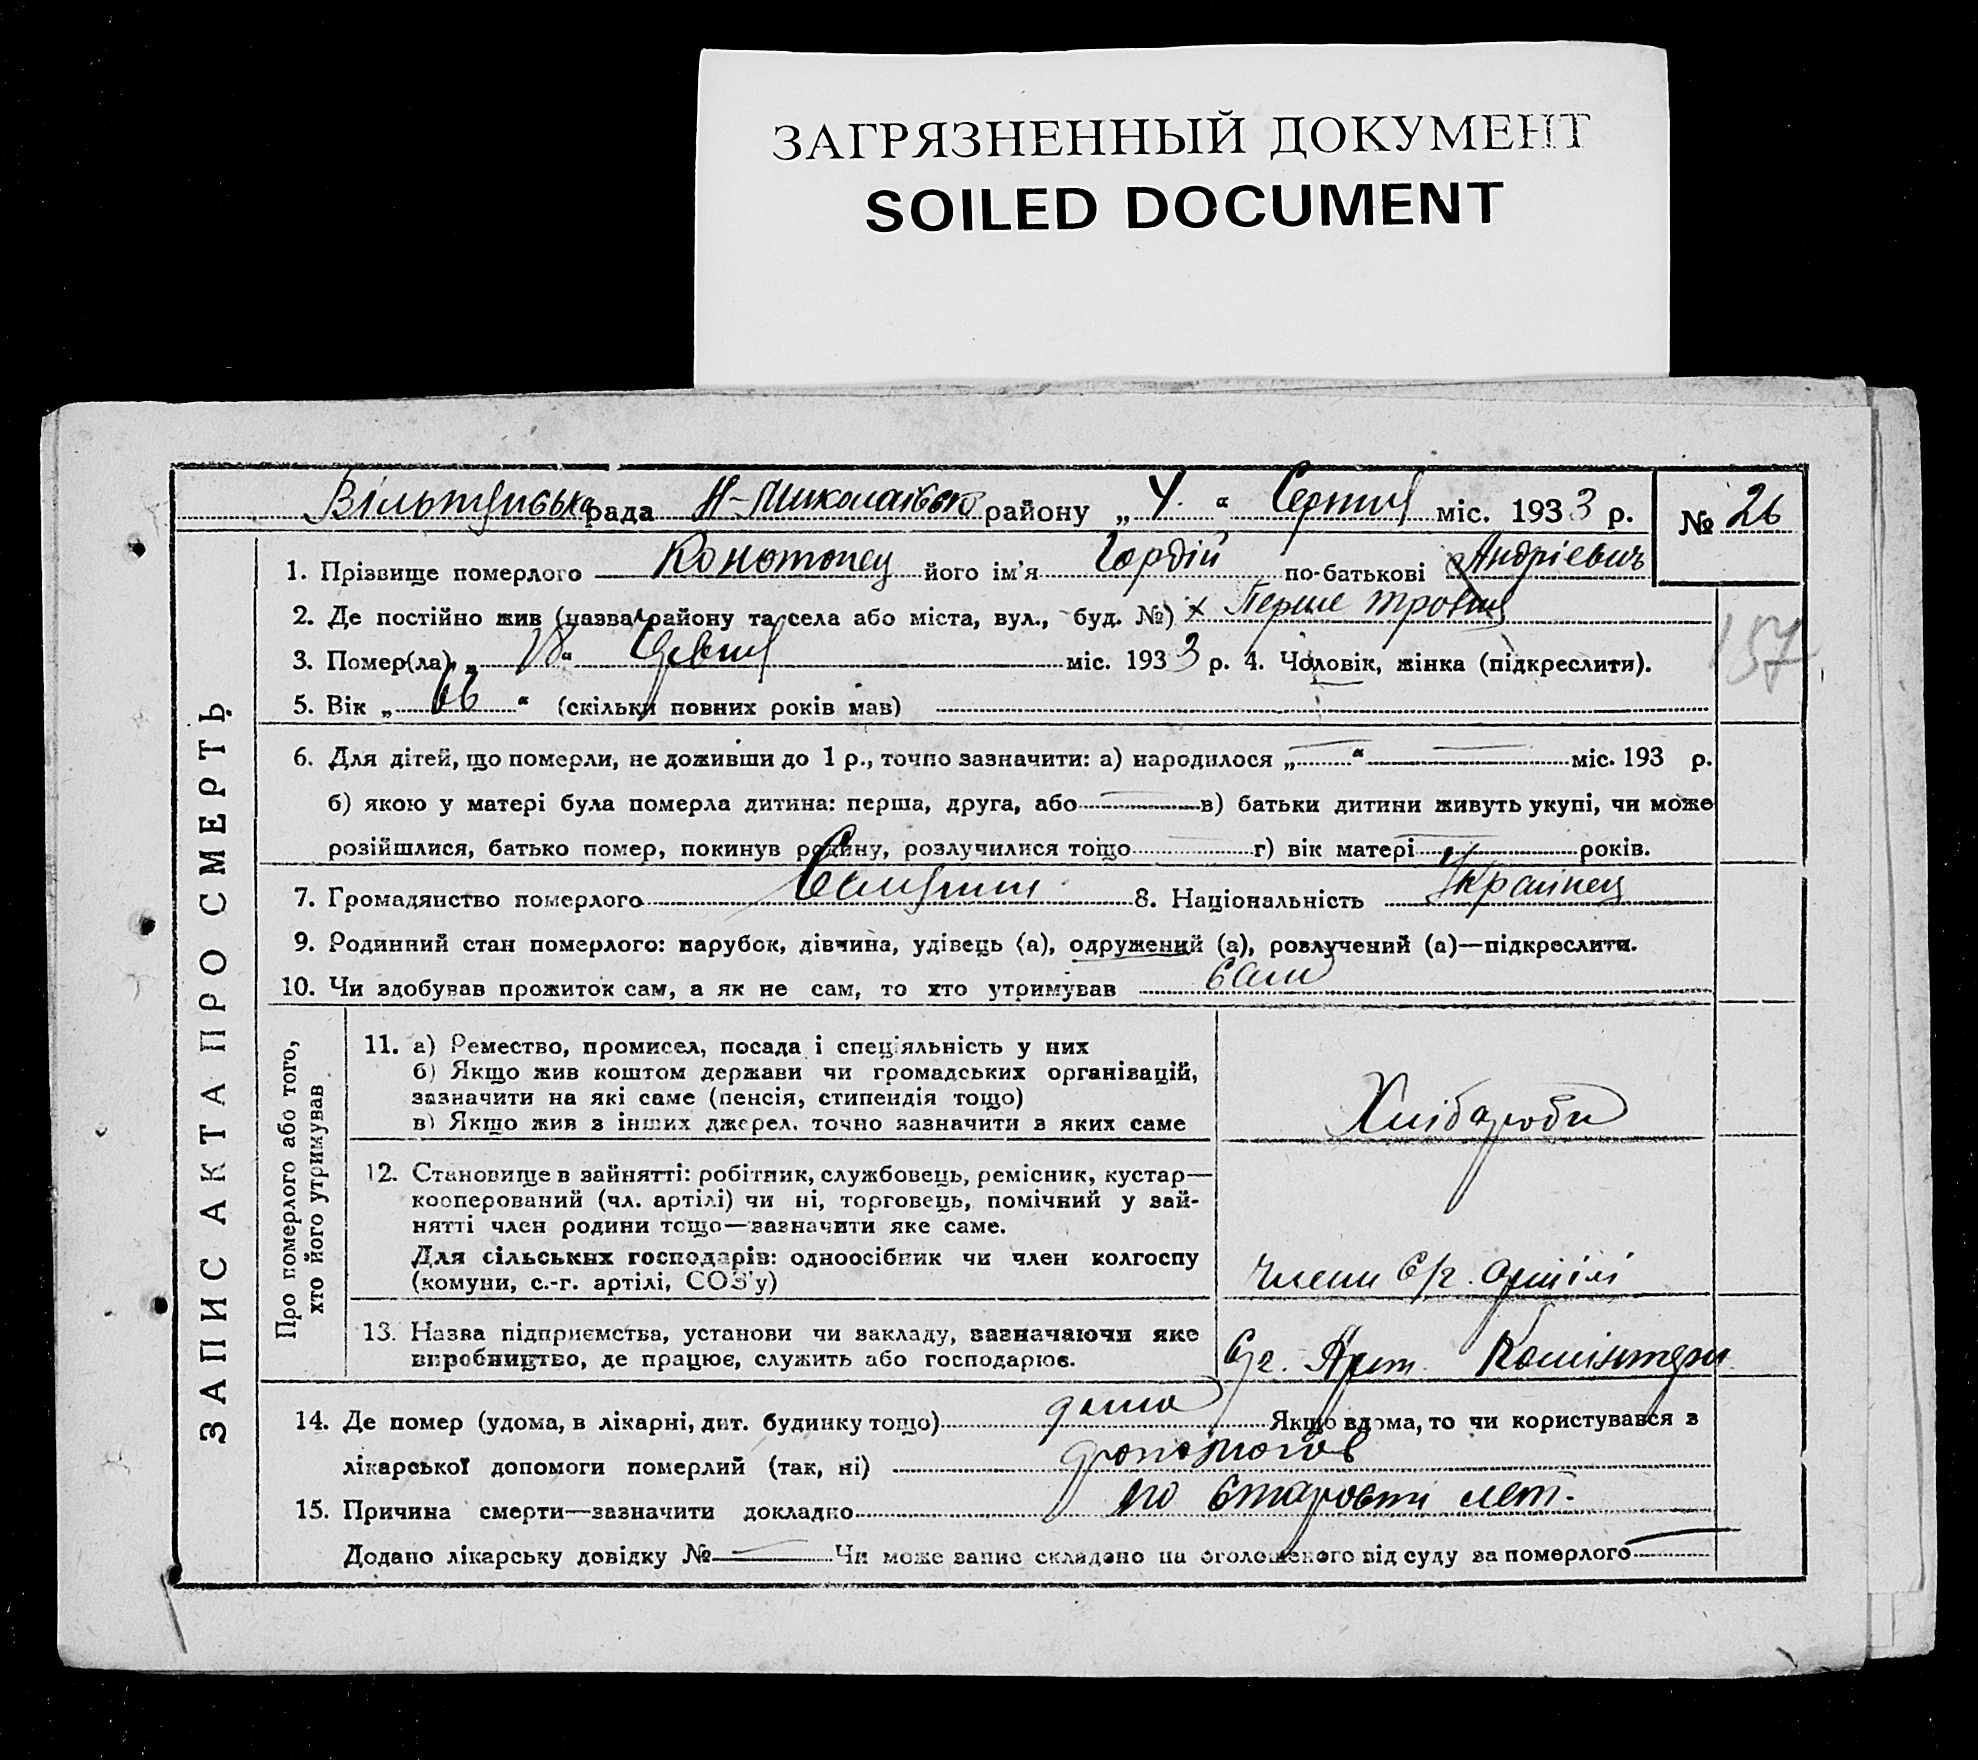 ЗАГРЯЗНЕННЫЙ ДОКУМЕНТ
SOILED DOCUMENT
рада Н-Миколаївсько району „ 4 “ Серпня міс. 1933 р. № 26
ЗАПИС АКТА ПРО СМЕРТЬ
1. Прізвище померлого Конотопец його ім'я Гордій по-батькові Андрієвич
2. Де постійно жив (назва району та села або міста, вул., буд. №) х Перше травня
3. Помер(ла) „ “ міс. 1933 р. 4. Чоловік, жінка (підкреслити).
157
5. Вік „ 66 “ (скільки повних років мав)
6. Для дітей, що померли, не доживши до 1 р., точно зазначити: а) народилося „ — “ — міс. 193 р.
б) якою у матері була померла дитина: перша, друга, або — в) батьки дитини живуть укупі, чи може
розійшлися, батько помер, покинув родину, розлучилися тощо — г) вік матері — років.
7. Громадянство померлого 8. Національність Українец
9. Родинний стан померлого: парубок, дівчина, удівець (а), одружений (а), розлучений (а)—підкреслити.
10. Чи здобував прожиток сам, а як не сам, то хто утримував сам
Про померлого або того,
хто його утримував
11. а) Ремество, промисел, посада і спеціяльність у них
б) Якщо жив коштом держави чи громадських організацій,
зазначити на які саме (пенсія, стипендія тощо)
в) Якщо жив з інших джерел, точно зазначити з яких саме
Хлібароби
12. Становище в зайнятті: робітник, службовець, ремісник, кустар—
кооперований (чл. артілі) чи ні, торговець, помічний у зай-
нятті член родини тощо—зазначити яке саме.
Для сільських господарів: одноосібник чи член колгоспу
(комуни, с.-г. артілі, СОЗ'у)
члени с/г. артілі
13. Назва підприємства, установи чи закладу, зазначаючи яке
виробництво, де працює, служить або господарює.
С/г. Арт. Комінтерн
14. Де помер (удома, в лікарні, дит. будинку тощо) дома Якщо вдома, то чи користувався з
лікарської допомоги померлий (так, ні)
15. Причина смерти—зазначити докладно по старости лет.
Додано лікарську довідку № — Чи може запис складено на оголошеного від суду за померлого —